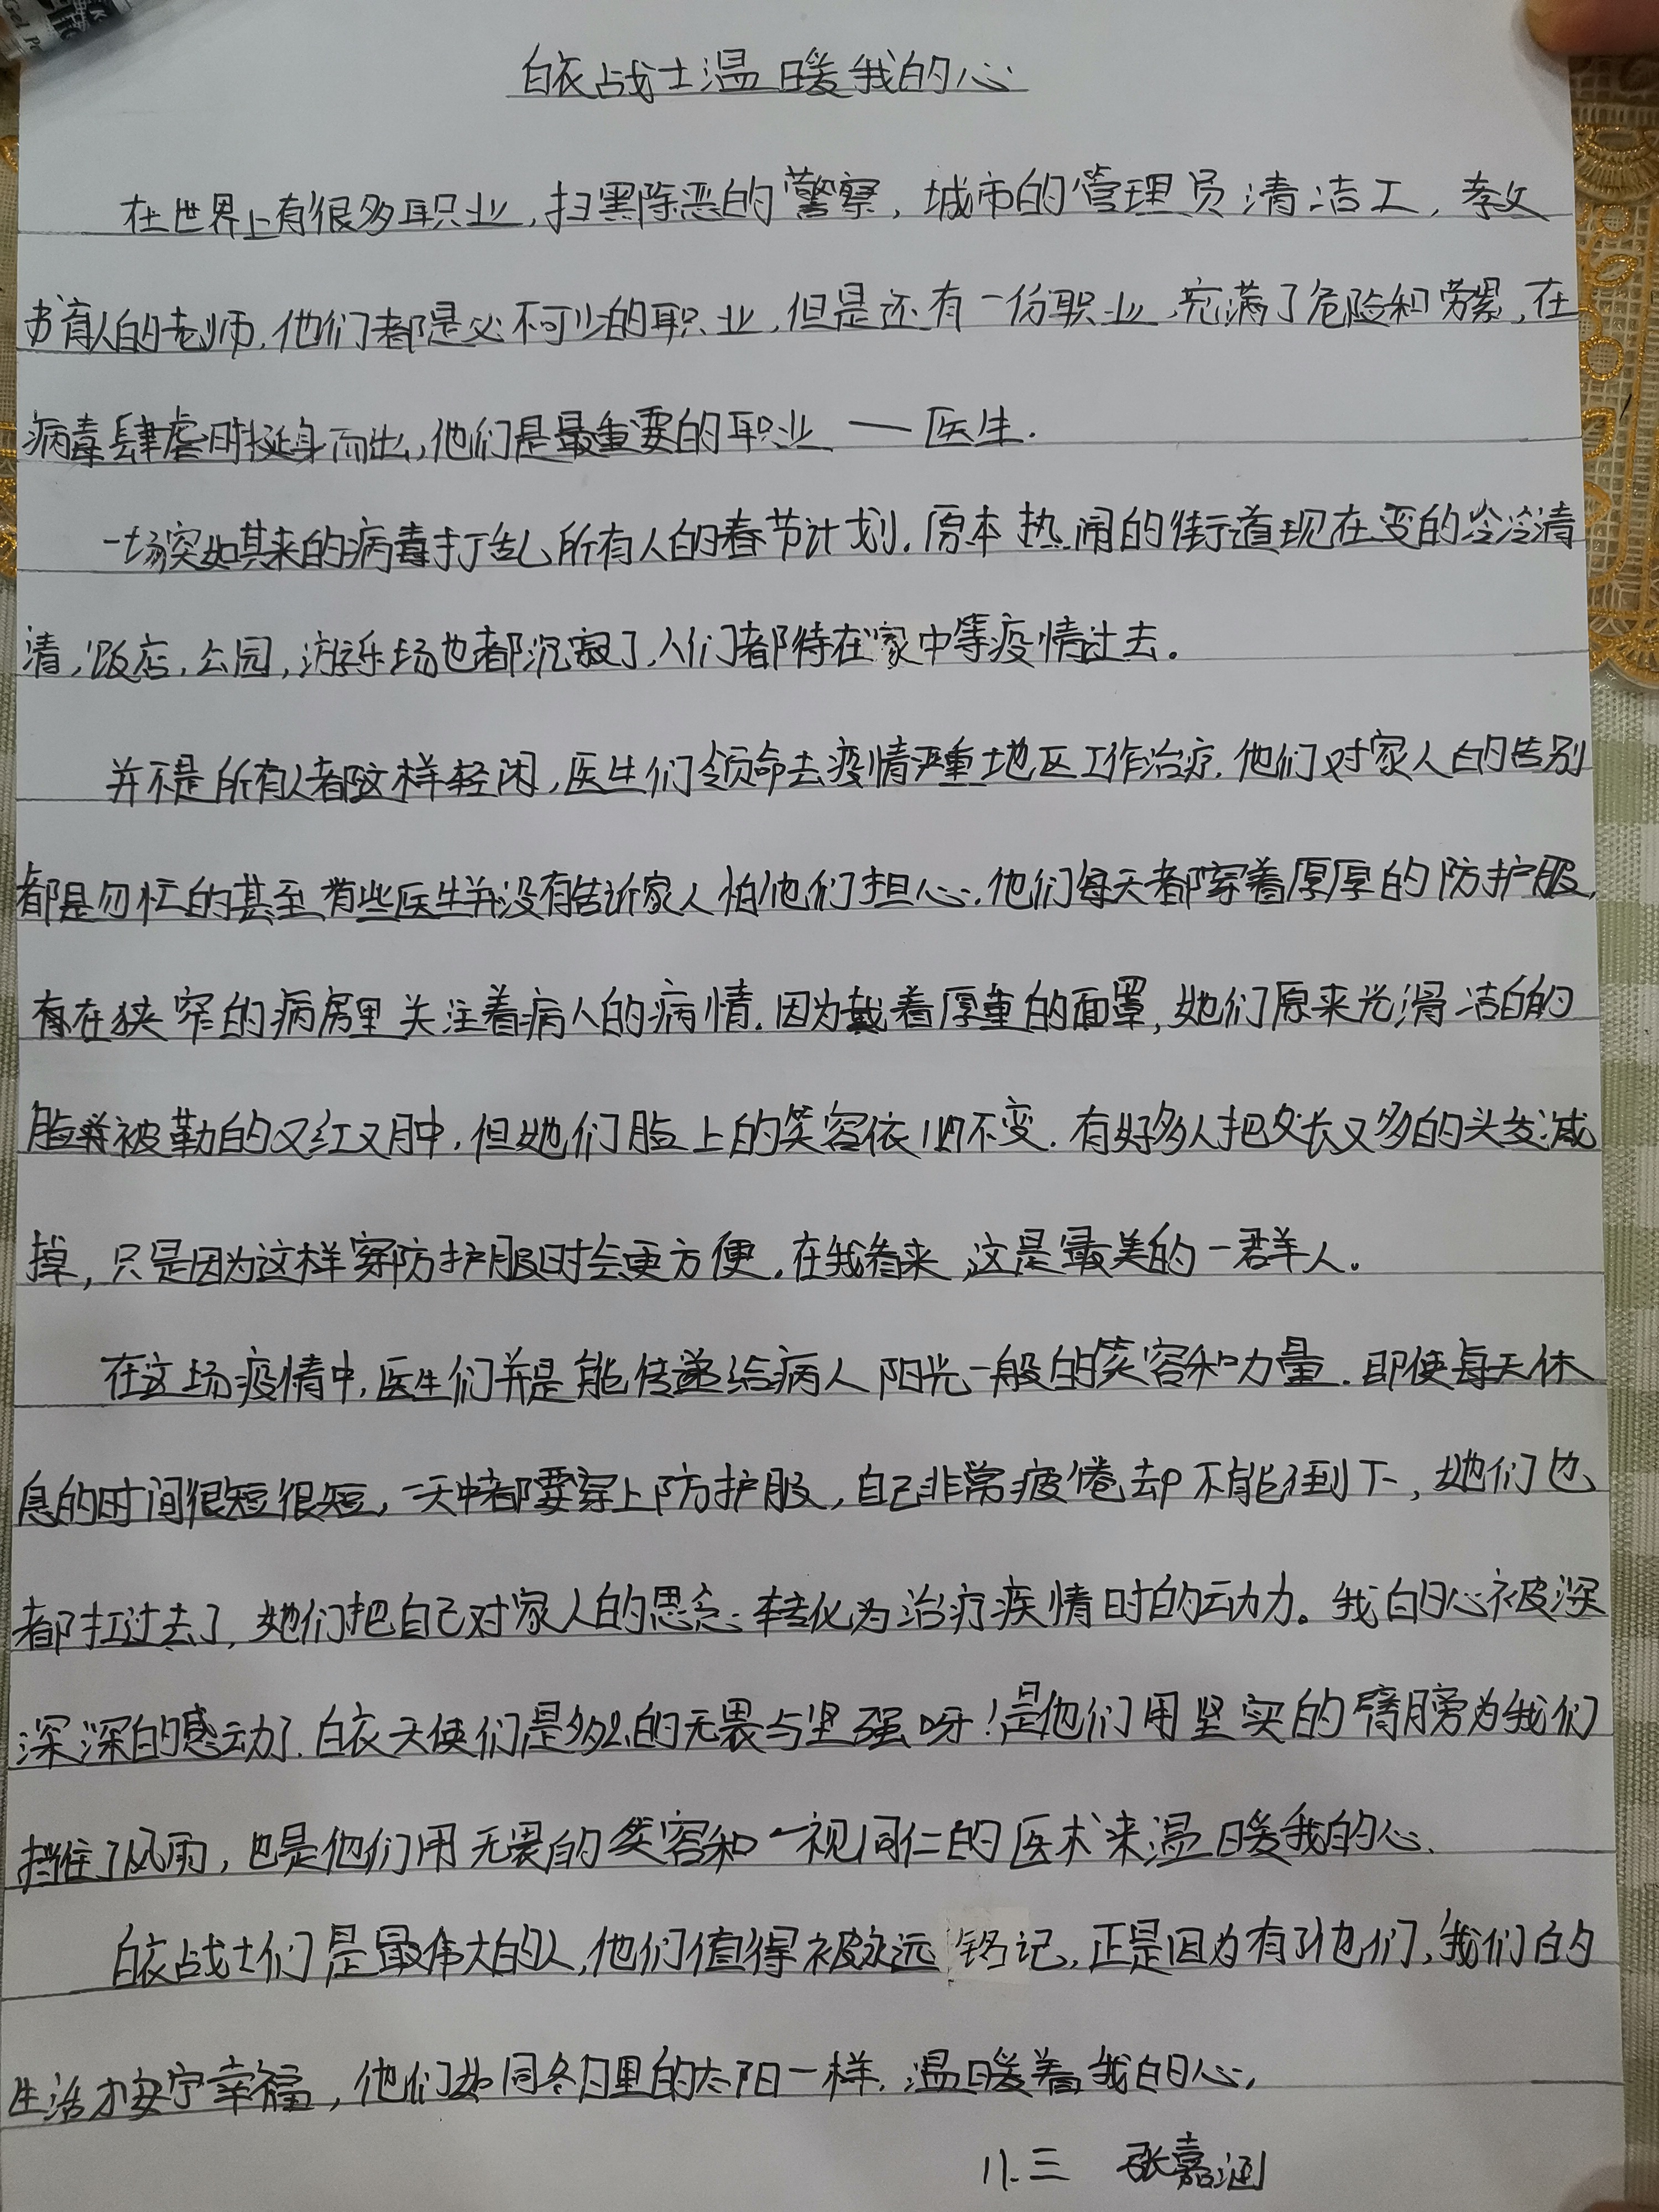 白衣战士温暖我的心
在世界上有很多职业,扫黑除恶的警察,城市的管理员清洁工,教
书育人的老师,他们都是必不可少的职业,但是还有一份职业,充满了危险和劳累,在
病毒肆虐时挺身而出,他们是最重要的职业——医生.
一场突如其来的病毒打乱所有人的春节计划.原本热闹的街道现在变的冷冷清
清,饭店,公园,游乐场也都沉寂了,人们都待在家中等疫情过去。
并不是所有人都这样轻闲,医生们领命去疫情严重地区工作治疗.他们对家人的告别
都是匆忙的甚至有些医生并没有告诉家人怕他们担心.他们每天都穿着厚厚的防护服,
在狭窄的病房里关注着病人的病情.因为戴着厚重的面罩,她们原来光滑洁白的
脸被勒的又红又肿,但她们脸上的笑容依旧不变.有好多人把又长又多的头发减
掉,只是因为这样穿防护服时会更方便.在我看来,这是最美的一群人。
在这场疫情中,医生们并是能传递给病人阳光一般的笑容和力量.即使每天休
息的时间很短很短,一天中都要穿上防护服,自己非常疲倦却不能到下,她们也
都扛过去了,她们把自己对家人的思念转化为治疗疾情时的动力。我的心被深
深深的感动了.白衣天使们是多么的无畏与坚强呀!是他们用坚实的臂膀为我们
挡住了风雨,也是他们用无畏的笑容和一视同仁的医术来温暖我的心.
白衣战士们是最伟大的人,他们值得被永远铭记,正是因为有了他们,我们的
生活才安宁幸福,他们如同冬日里的太阳一样.温暖着我的心,
八.三 张嘉涵